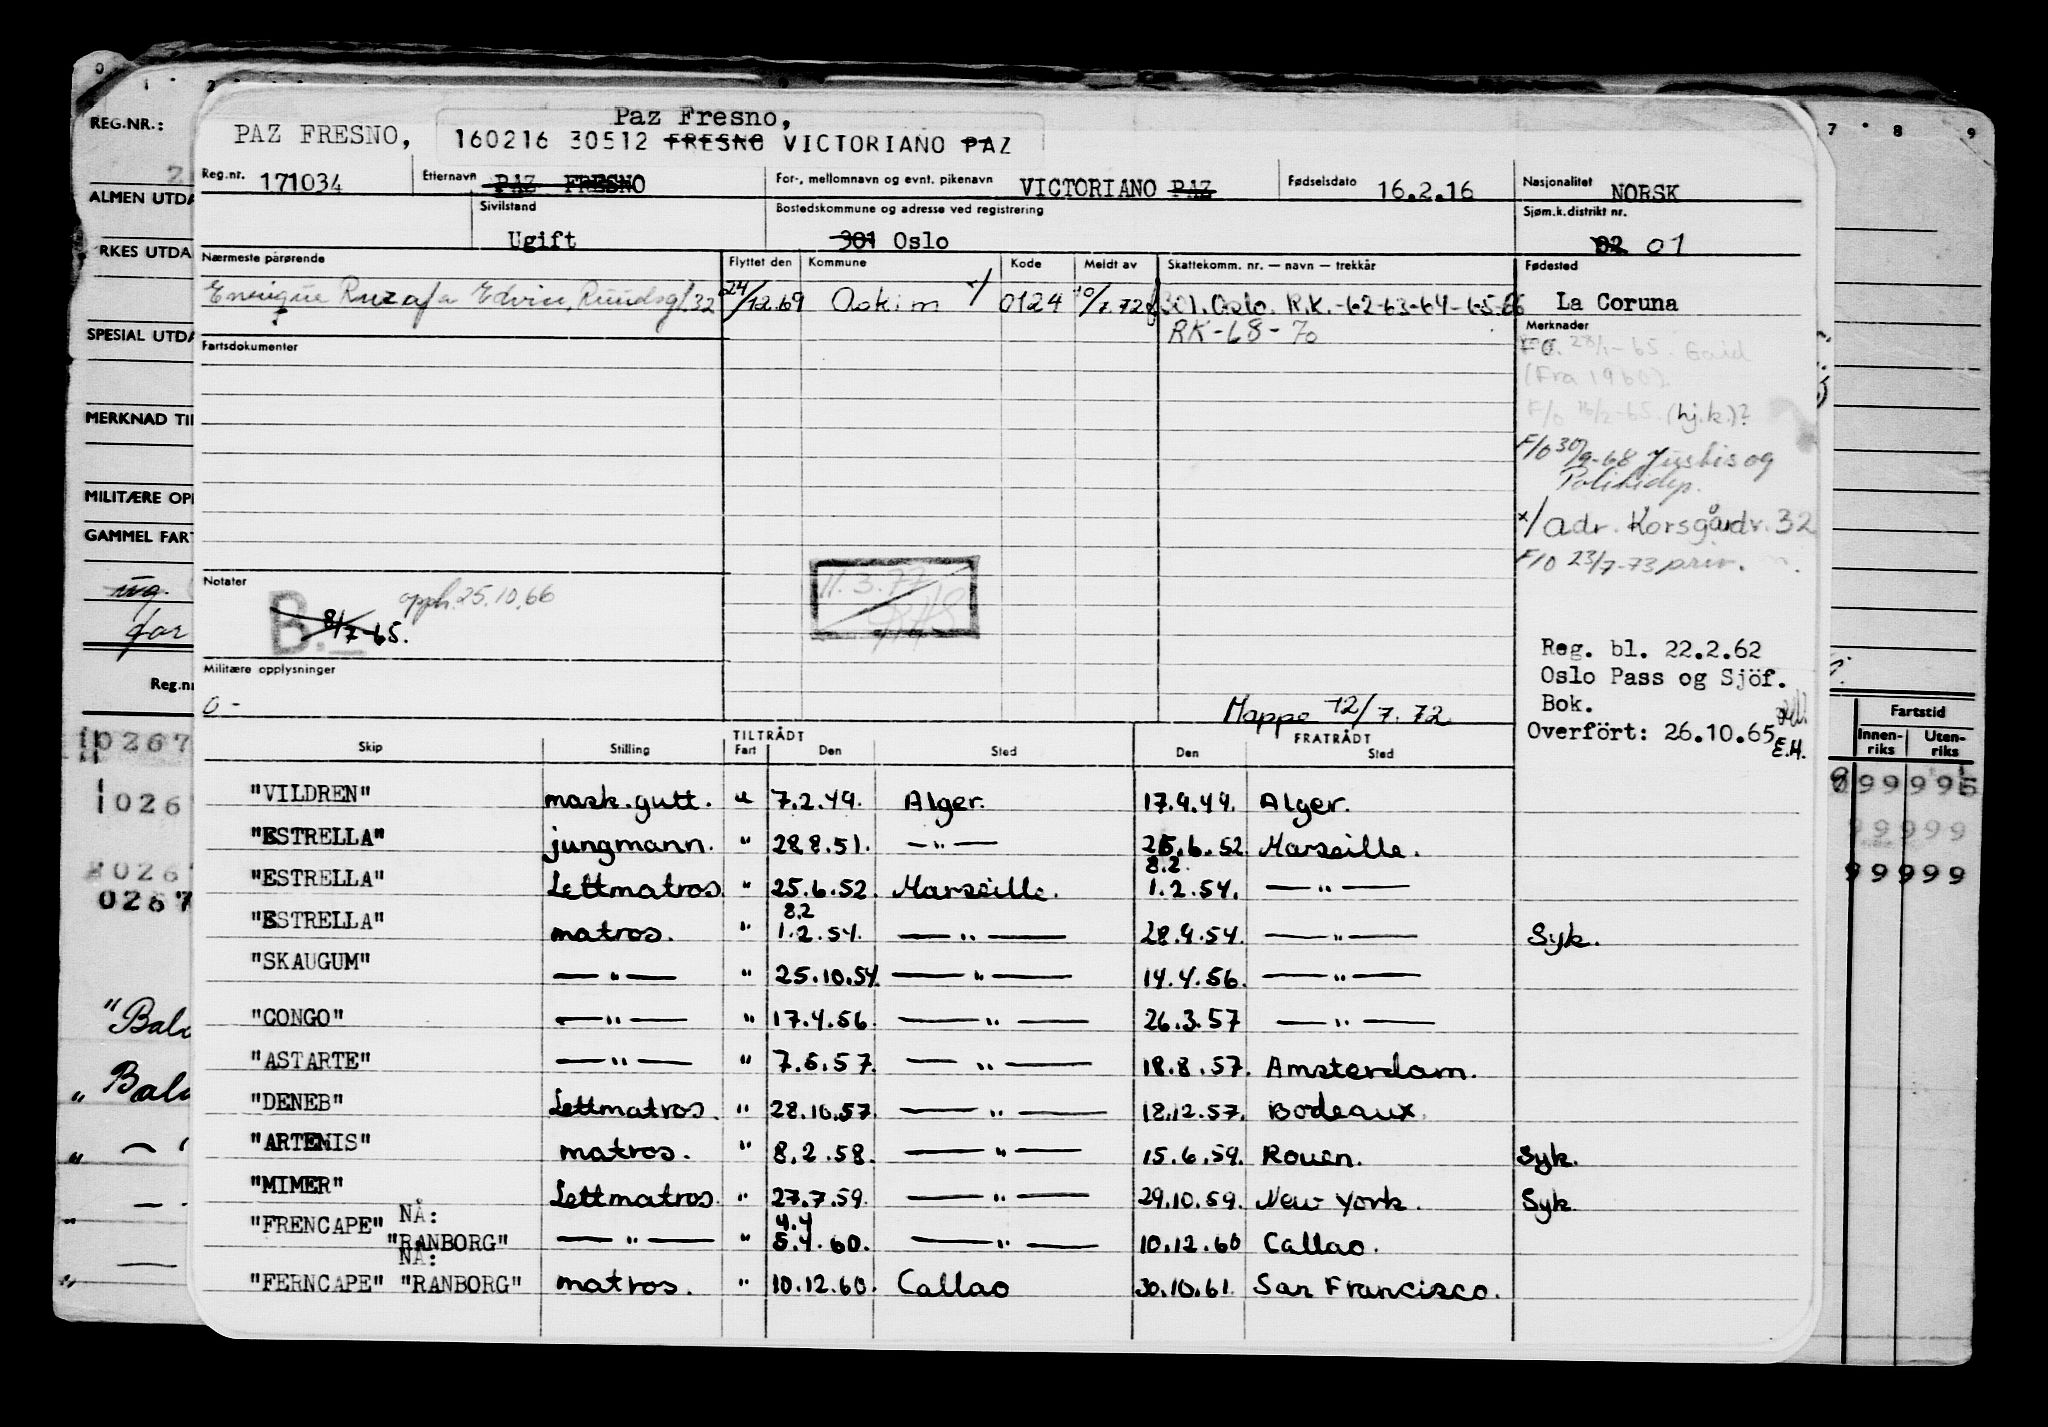 0 1 2 7 8 9
REG.NR.:
ALMEN UTDA
RKES UTDA
SPESIAL UTDA
MERKNAD TIL
MILITÆRE OPP
GAMMEL FART
ug.
for
Reg.nr
Fartstid
Innen-riks Uten-riks
0267
0267
0267
0267
99999
99999
"Bal
" Bal
Paz Fresno,
PAZ FRESNO, 160216 30512 FRESNO VICTORIANO PAZ
Reg.nr. 171034 Etternavn PAZ FRESNO For-, mellomnavn og evnt. pikenavn VICTORIANO PAZ Fødselsdato 16.2.16 Nasjonalitet NORSK
Sivilstand Ugift Bostedskommune og adresse ved registrering 301 Oslo Sjøm.k.distrikt nr. 02 01
Nærmeste pårørende Flyttet den Kommune Kode Meldt av Skattekomm. nr. — navn — trekkår Fødested
Enrique Ruzafa Edvin Ruudsgt. 32 24/12.69 Askim x/ 0124 10/7.72 301. Oslo. R.K.-62-63-64-65-66 La Coruna
RK-68-70
Merknader
Fartsdokumenter
F/O. 28/1-65. Gaid
(Fra 1960)
F/o 16/2-65. (hj.k.)?
F/O 30/9-68 Justis og
Politidep.
x/ adr. Korsgårdv. 32
F/O 23/7-73 priv.
Notater
B. 8/7-65. opph. 25.10.66
11.3.77
Militære opplysninger
0 -
Mappe 12/7.72
Reg. bl. 22.2.62
Oslo Pass og Sjöf.
Bok.
Overfört: 26.10.65
E.H.
TILTRÅDT FRATRÅDT
Skip Stilling Fart Den Sted Den Sted
"VILDREN" mask.gutt. u 7.2.49. Alger. 17.9.49. Alger.
"ESTRELLA" jungmann. " 28.8.51. —"— 25.6.52. Marseille.
8.2.
"ESTRELLA" Lettmatros. " 25.6.52. Marseille. 1.2.54. —"—
8.2
"ESTRELLA" matros. " 1.2.54. —"— 28.9.54. —"— Syk.
"SKAUGUM" —"— " 25.10.54. —"— 14.4.56. —"—
"CONGO" —"— " 17.4.56. —"— 26.3.57 —"—
"ASTARTE" —"— " 7.5.57. —"— 18.8.57. Amsterdam.
"DENEB" Lettmatros. " 28.10.57. —"— 18.12.57. Bodeaux.
"ARTEMIS" matros. " 8.2.58. —"— 15.6.59. Rouen. Syk.
"MIMER" Lettmatros. " 27.7.59. —"— 29.10.59. New York. Syk.
NÅ: 4.4
"FRENCAPE" "RANBORG" —"— " 5.4.60. —"— 10.12.60 Callao.
NÅ:
"FERNCAPE" "RANBORG" matros. " 10.12.60. Callao 30.10.61. San Francisco.